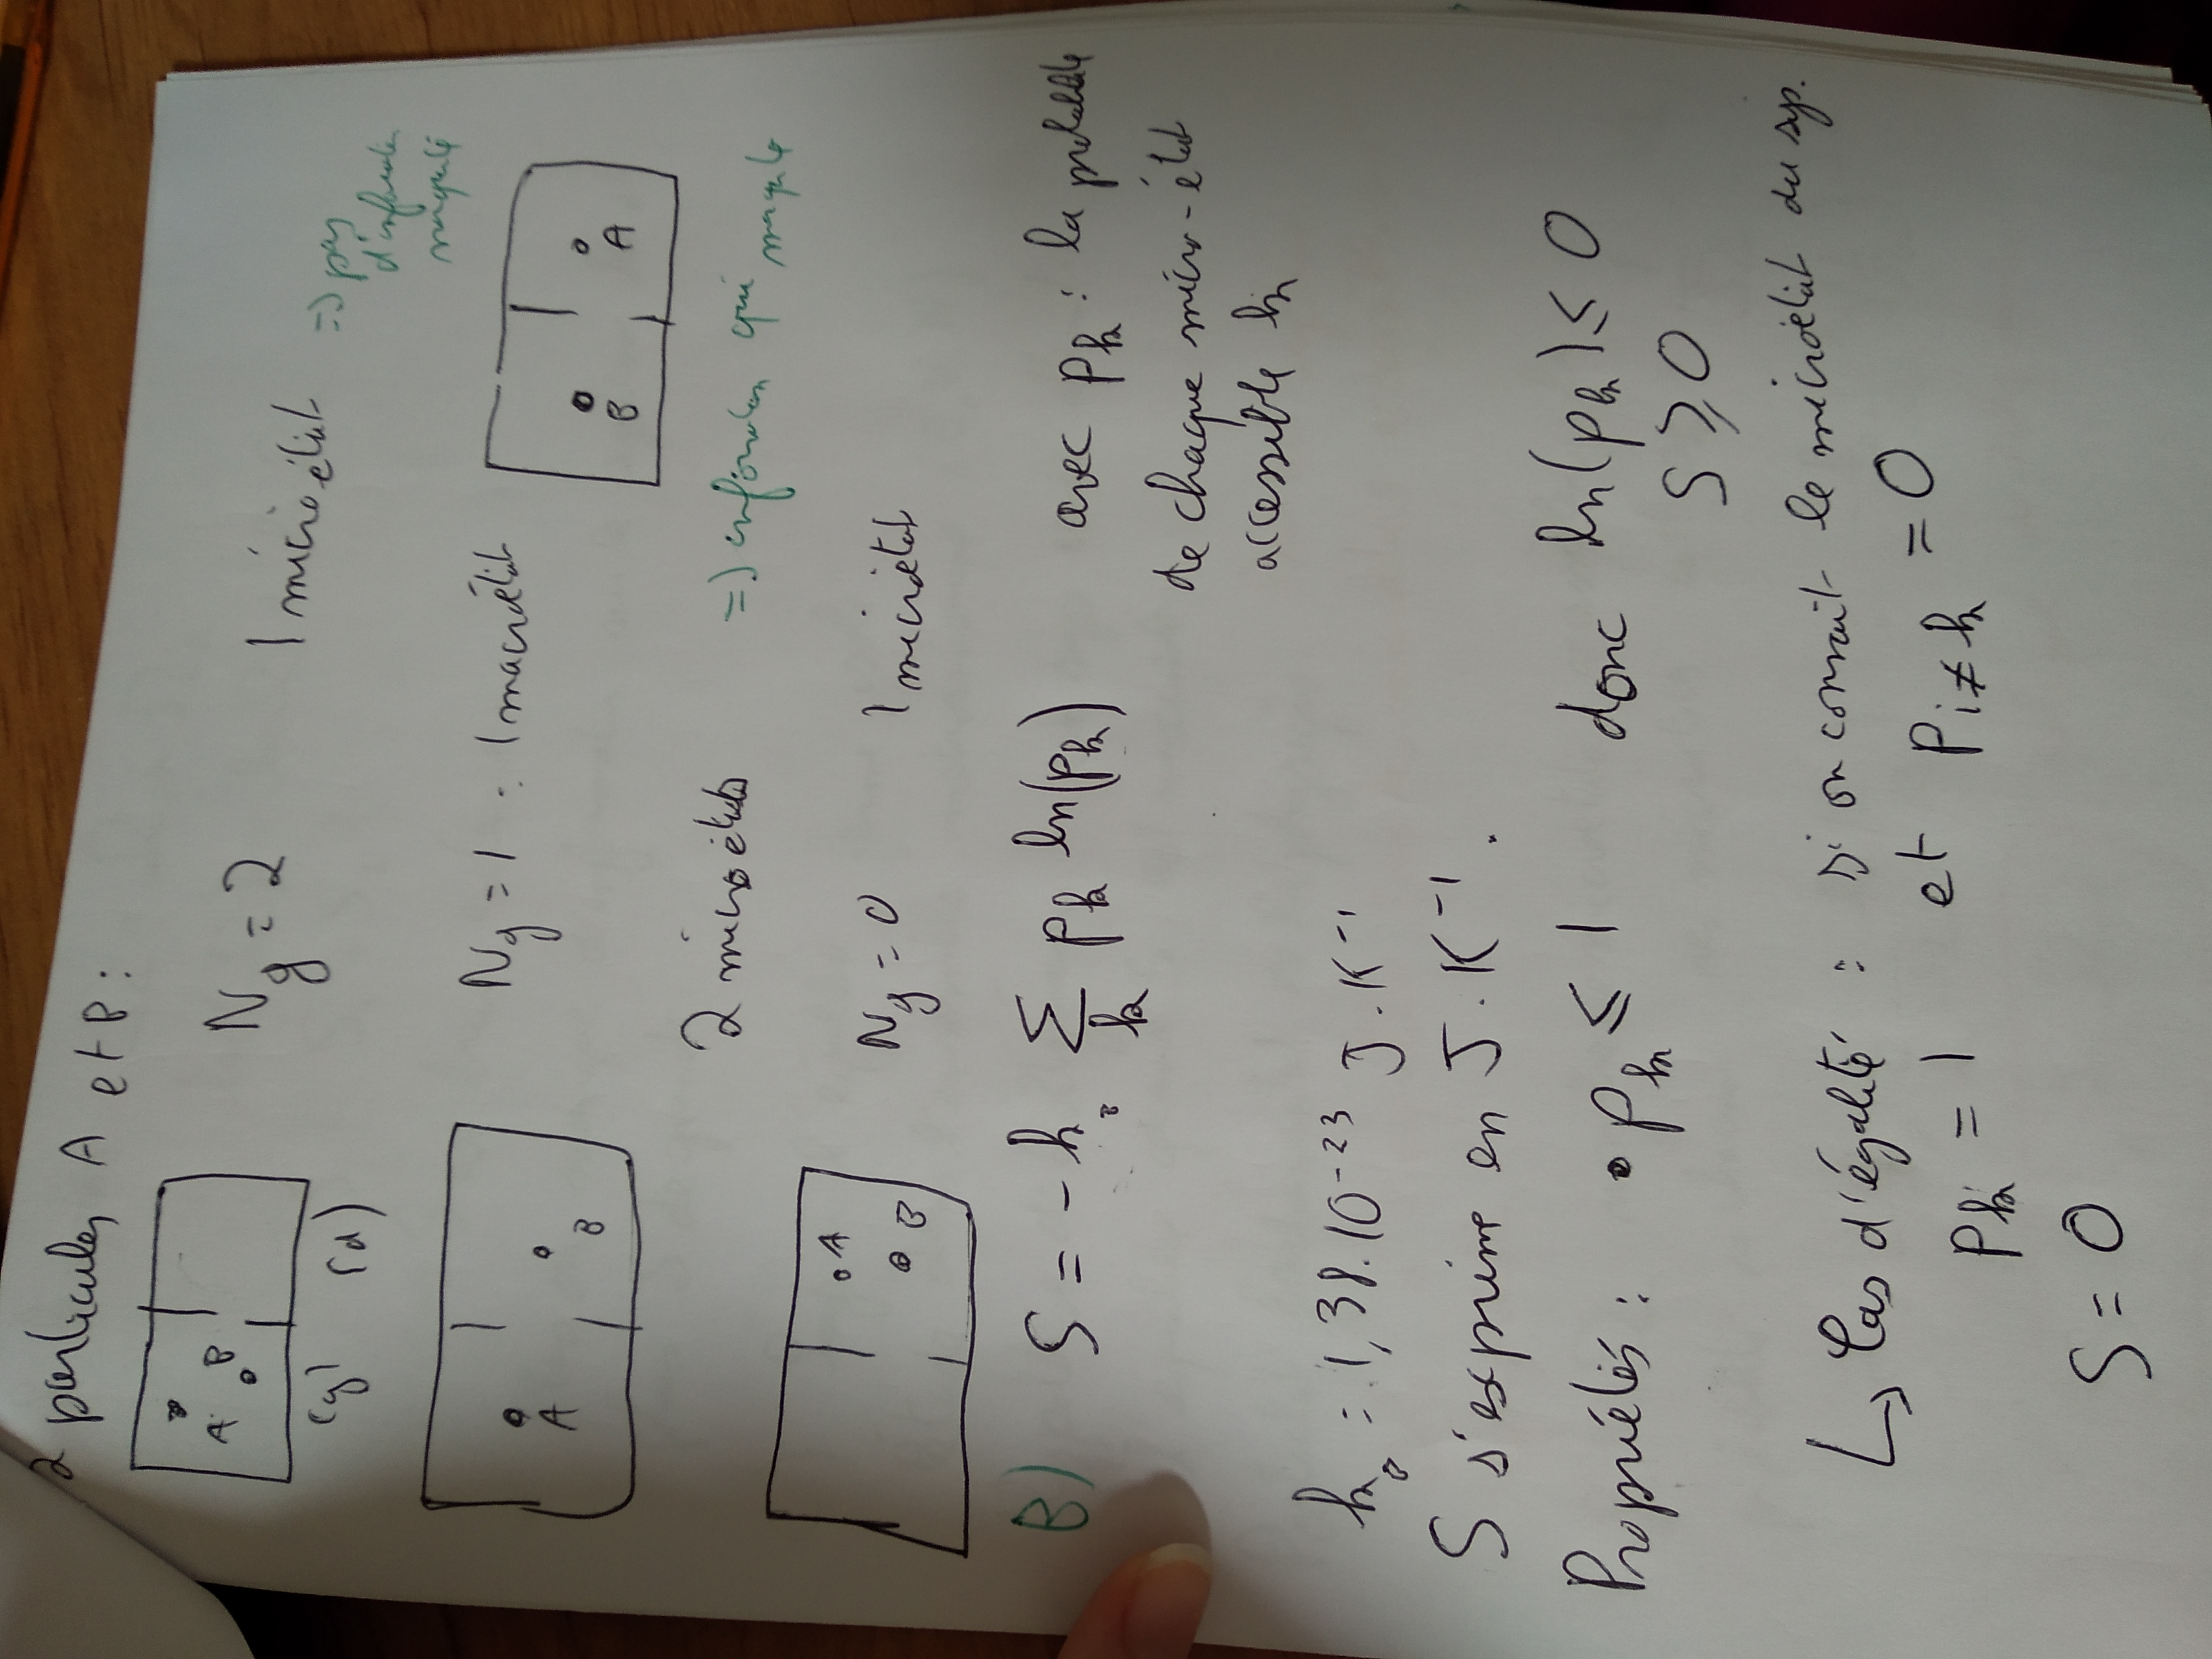 2 particules A et B :
A B
(g) (d)
Ng = 2
1 microétat
=> pas
d'information
manquante
A B
Ng = 1 : 1 macroétat
B A
2 microétats
=> information qui manque
A B
Ng = 0
1 microétat
B) S = - k_B ∑_k P_k ln(P_k) avec P_k : la probabilité
de chaque micro-état
accessible k
k_B = 1,38.10^-23 J.K^-1
S s'exprime en J.K^-1.
Propriétés : • P_k ≤ 1 donc ln(P_k) ≤ 0
S ≥ 0
↳ Cas d'égalité : si on connaît le microétat du sys.
P_k = 1 et P_i≠k = 0
S = 0